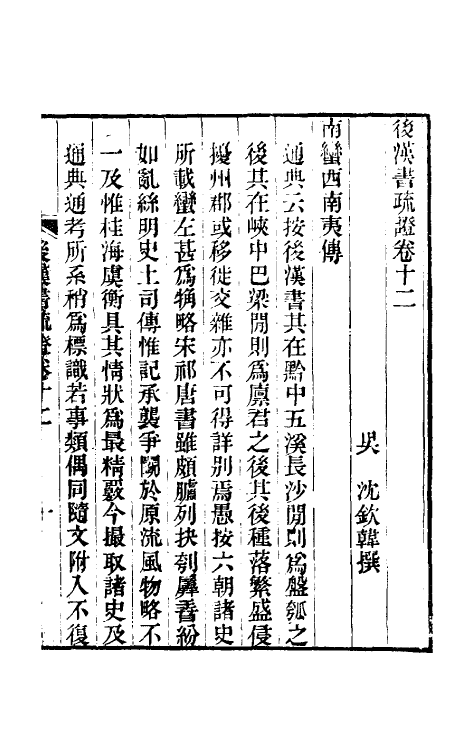 後漢書疏證卷十二
吳 沈欽韓撰
南蠻西南夷傳
通典云按後漢書其在黔中五溪長沙閒則爲盤瓠之
後其在峽中巴梁閒則爲廩君之後其後種落繁盛侵
擾州郡或移徙交雜亦不可得詳別焉愚按六朝諸史
所載蠻左甚爲觕略宋祁唐書雖頗臚列抉刳羼舂紛
如亂絲明史土司傳惟記承襲爭鬭於原流風物略不
一及惟桂海虞衡具其情狀爲最精覈今撮取諸史及
通典通考所系稍爲標識若事類偶同隨文附入不復
後漢書疏證卷十二